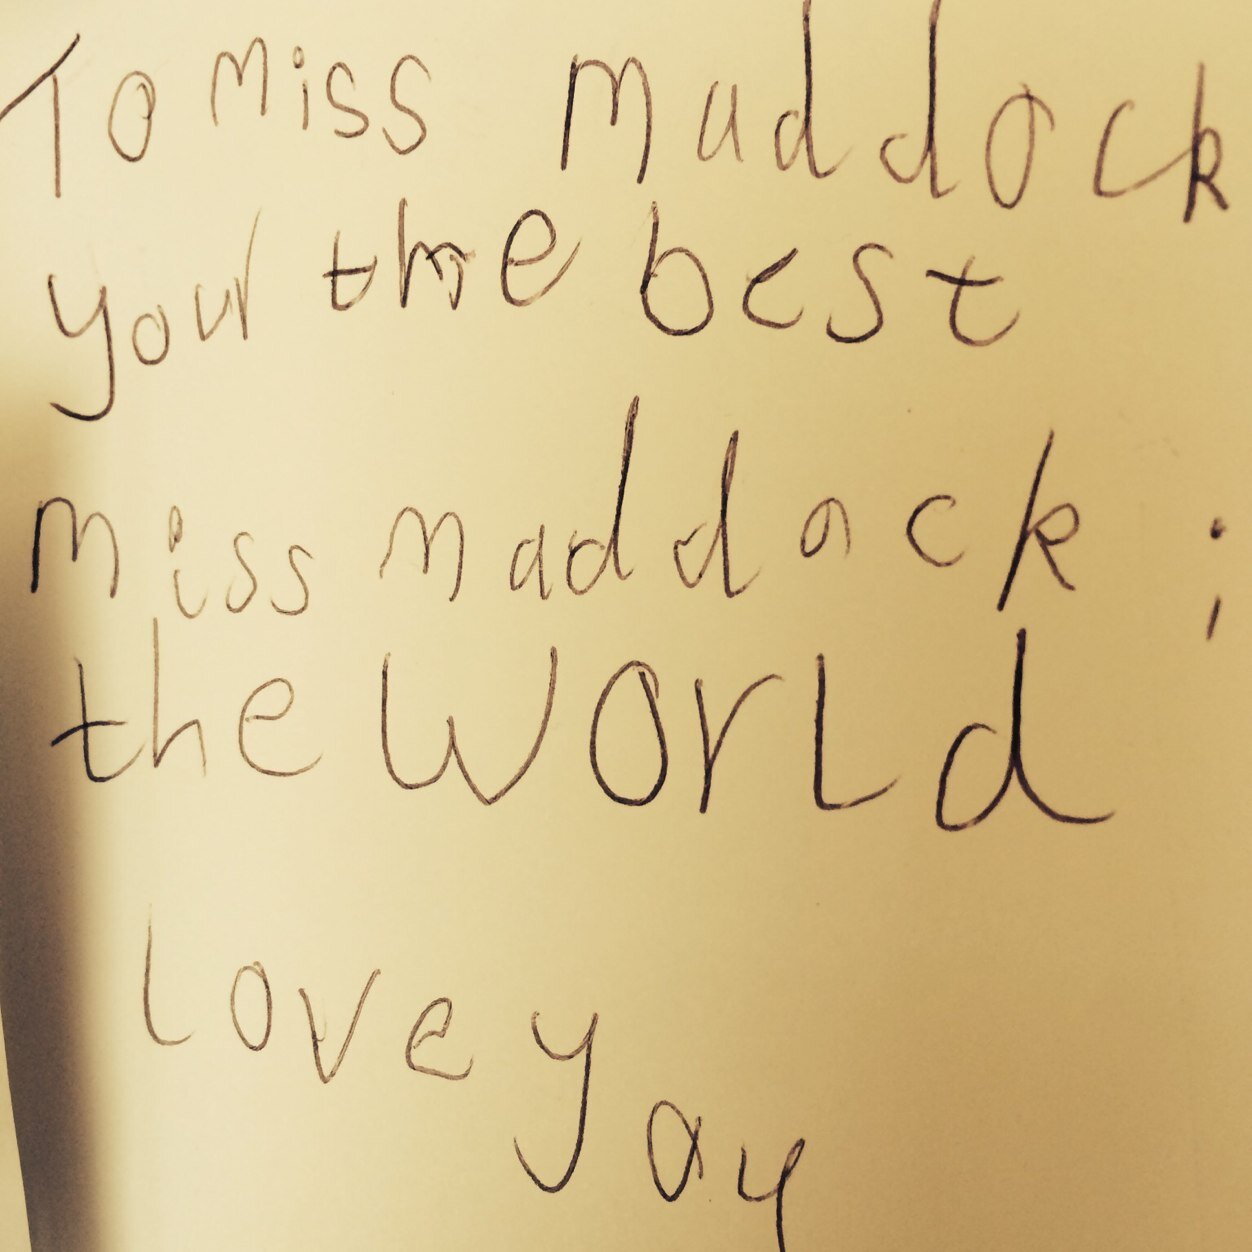 To miss maddock
your the best
miss maddock in
the World
Love y
ay